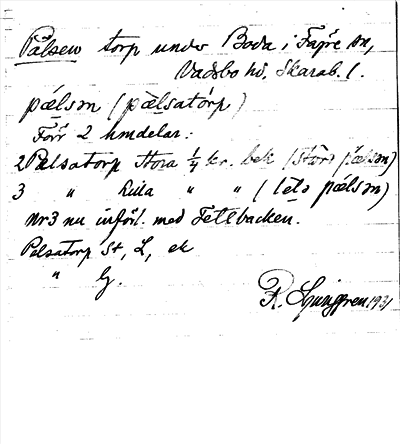 Pålsen torp under Boda i Fagre sn,
Vadsbo hd, Skarab. l.
pælsm (pælsatórp)
Förr 2 hmdelar:
2 Pålsatorp Stora 1/4 kr. bek (störə pælsm)
3 " Lilla " " (letə pælsm)
Nr 3 nu införl. med Fettbacken.
Pelsatorp St, L, ek
" G.
R. Ljunggren 1931